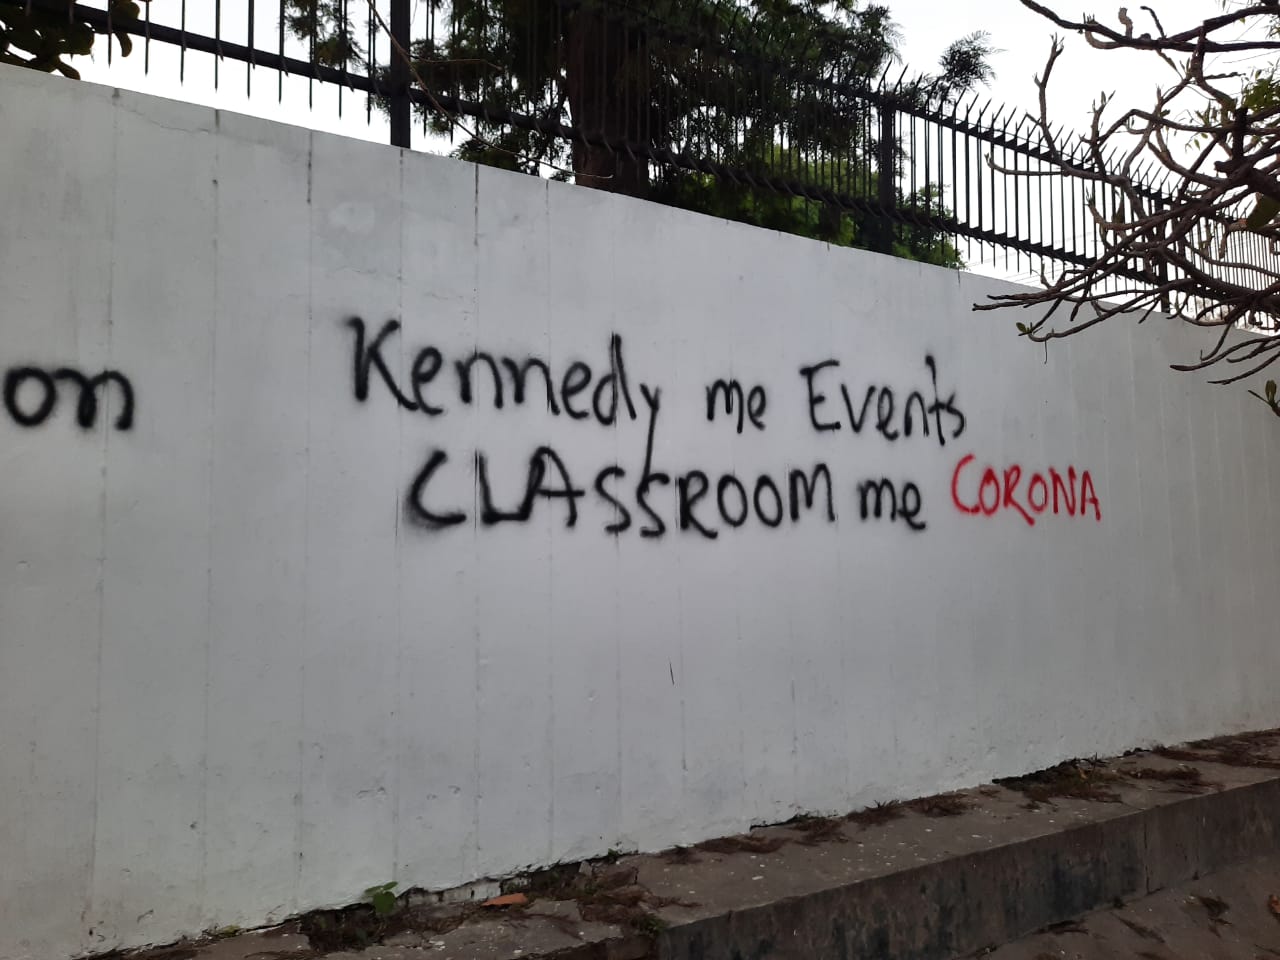 on
Kennedy me Events
CLASSROOM me CORONA